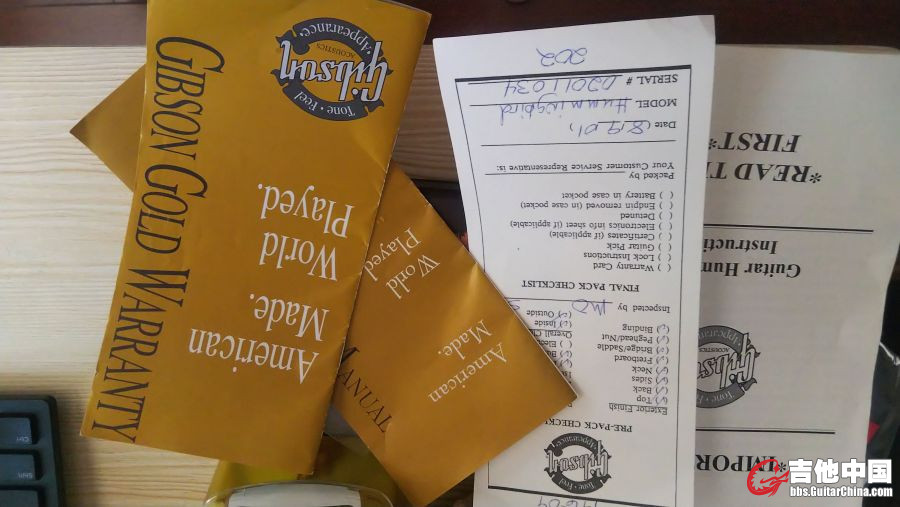 GIBSON GOLD WARRANTY
Gibson
ACOUSTICS
Tone · Feel · Appearance
American
Made.
World
Played.
American
Made.
World
Played.
MANUAL
Gibson
Tone · Feel · Appearance
PRE-PACK CHECKLIST
Exterior Finish
(✓) Top
(✓) Back
(✓) Sides
(✓) Neck
(✓) Fretboard
(✓) Bridge/Saddle
(✓) Peghead/Nut
(✓) Binding
Overall
(✓) Inside
(✓) Outside
Inspected by
FINAL PACK CHECKLIST
( ) Warranty Card
( ) Lock Instructions
( ) Guitar Pick
( ) Certificates (if applicable)
( ) Electronics info sheet (if applicable)
( ) Detuned
( ) Endpin removed (in case pocket)
( ) Battery in case pocket
Packed by
Your Customer Service Representative is:
Date (8/9/01)
MODEL Hummingbird
SERIAL # 02011034
202
Gibson
ACOUSTICS
Tone · Feel · Appearance
Guitar
Instructi
*READ
FIRST*
吉他中国
bbs.GuitarChina.com